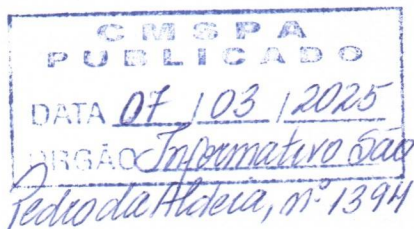 CMSPA
PUBLICADO
DATA 07 / 03 / 2025
ÓRGÃO Informativo São
Pedro da Aldeia, nº 1394